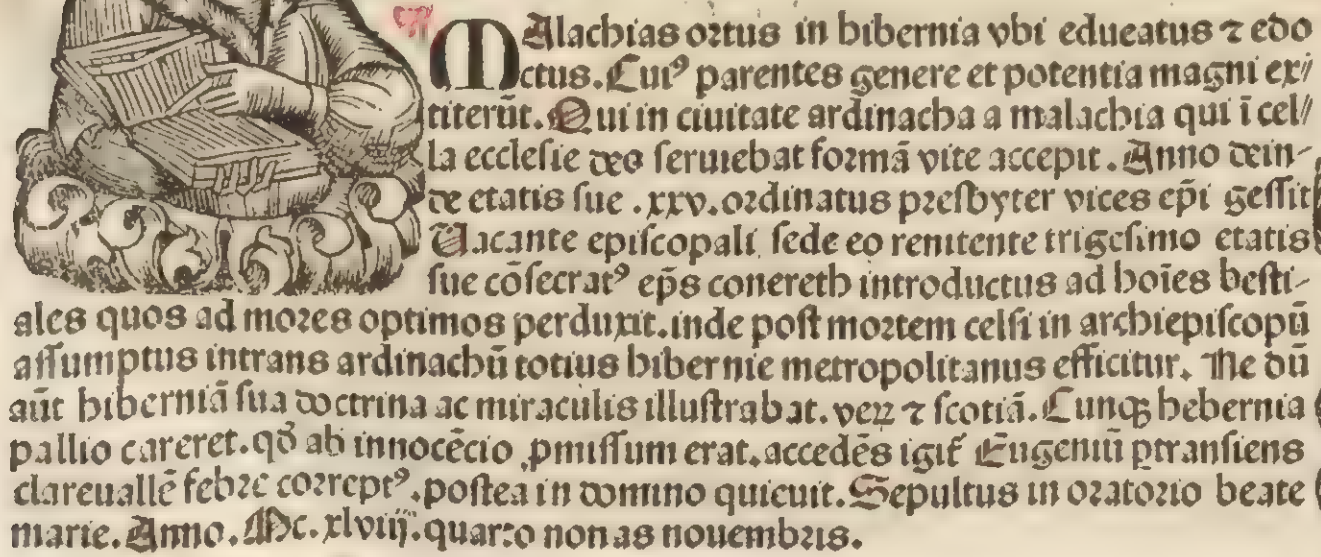 MAlachias ortus in hibernia vbi edueatus ⁊ edo
ctus. Cuiꝰ parentes genere et potentia magni ex/
titerūt. Qui in ciuitate ardinacha a malachia qui ī cel//
la ecclesie deo seruiebat formā vite accepit. Anno dein-
de etatis sue .xxv. ordinatus presbyter vices ep̄i gessit
Uacante episcopali sede eo renitente trigesimo etatis
sue cōsecratꝰ ep̄s conereth introductus ad hoīes besti-
ales quos ad mores optimos perduxit. inde post mortem celsi in archiepiscopū
assumptus intrans ardinachū totius hibernie metropolitanus efficitur. Ne dū
aūt hiberniā sua doctrina ac miraculis illustrabat. veꝝ ⁊ scotiā. Cunqꝫ hebernia
pallio careret. qđ ab innocēcio ꝓmissum erat. accedēs igit᷑ Eugeniū ꝑtransiens
clareuallē febre correptꝰ. postea in domino quieuit. Sepultus in oratorio beate
marie. Anno. Mc. xlviij. quarto nonas nouembris.